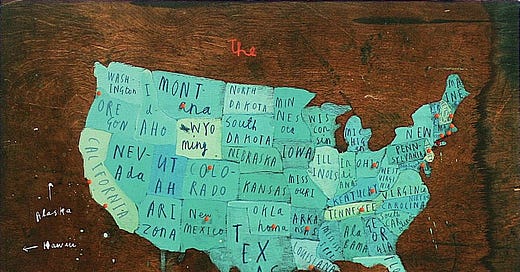 The
WASH-
INGTON
ORE
GON
I
d
AHO
MONT
ana
WYO
ming
NORTH
DAKOTA
South
DAKOTA
NEBRASKA
MIN
NES
OTA
WIS
CON
SIN
IOWA
ILL
INOIS
CALIFORNIA
NEV-
Ada
UT
AH
COLO-
RADO
KANSAS
MISS
OURI
ARI
ZONA
New
MEXICO
Okla
homa
ARKAN
TEX
MAINE
NEW
PENN-
KENTUCKY
VIRGINIA
TENNESSEE
Ala
BAMA
GEOR
LOUISIANA
FL
Alaska
Hawaii